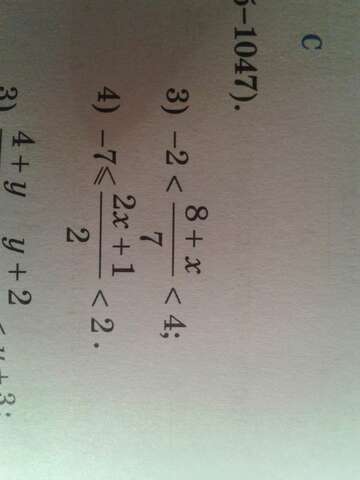 С
–1047).
3) –2 < \frac{8 + x}{7} < 4;
4) –7 ⩽ \frac{2x + 1}{2} < 2.
3) 4 + y y + 2 < y + 3;